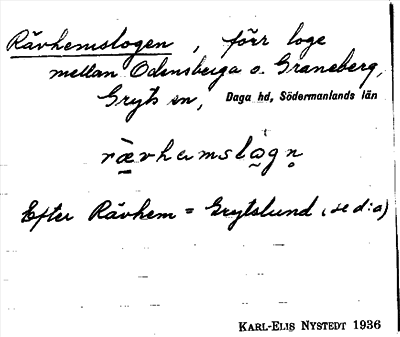 Rävhemslogen, förr loge
mellan Odensberga o. Graneberg,
Gryts sn, Daga hd, Södermanlands län
ræ̀vhemslɷgn̥
Efter Rävhem = Grytslund (se d:a)
KARL-ELIS NYSTEDT 1936